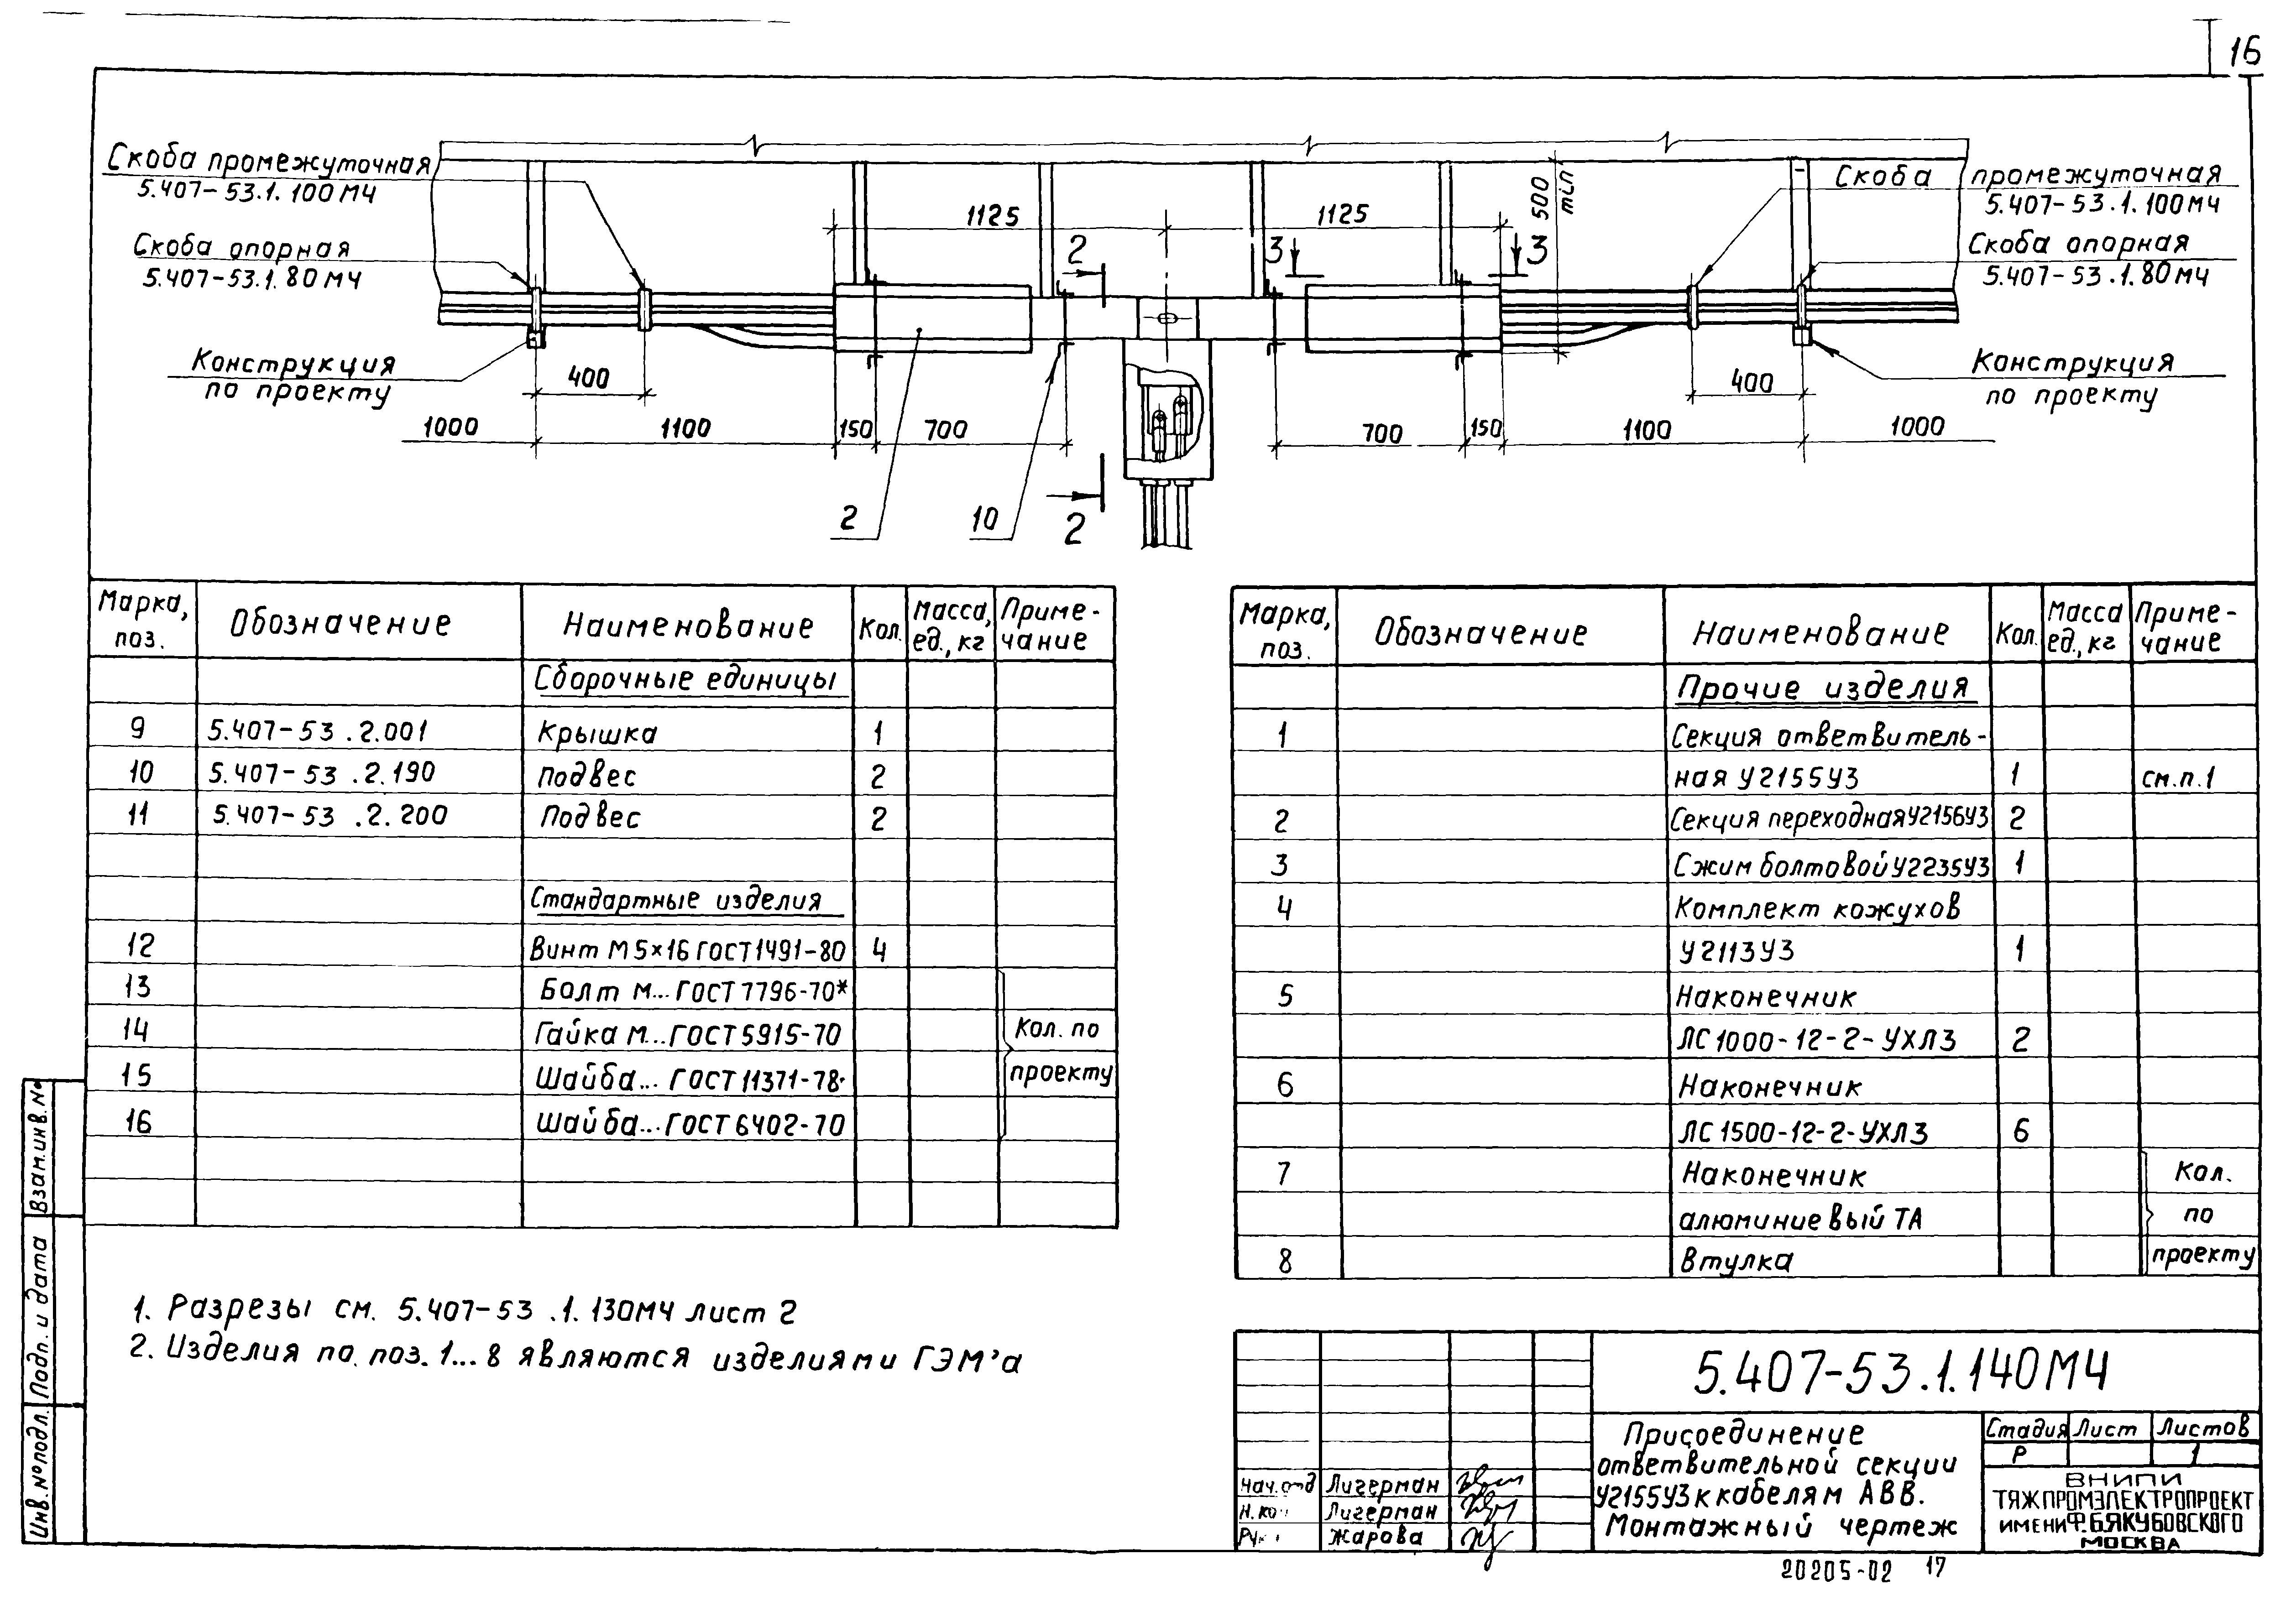 16
Скоба промежуточная
5.407-53.1.100МЧ
Скоба опорная
5.407-53.1.80МЧ
Конструкция
по проекту
1125
1125
500
min
2
3
3
Скоба промежуточная
5.407-53.1.100МЧ
Скоба опорная
5.407-53.1.80МЧ
Конструкция
по проекту
400
400
1000
1100
150
700
700
150
1100
1000
2
10
2
Марка, поз. Обозначение Наименование Кол. Масса, ед., кг Примечание
Сборочные единицы
9 5.407-53.2.001 Крышка 1
10 5.407-53.2.190 Подвес 2
11 5.407-53.2.200 Подвес 2
Стандартные изделия
12 Винт М5×16 ГОСТ1491-80 4
13 Болт М... ГОСТ 7796-70*
14 Гайка М... ГОСТ 5915-70 Кол. по
15 Шайба... ГОСТ 11371-78 проекту
16 Шайба... ГОСТ 6402-70
Марка, поз. Обозначение Наименование Кол. Масса ед., кг Примечание
Прочие изделия
1 Секция ответвитель-
ная У2155У3 1 см.п.1
2 Секция переходная У2156У3 2
3 Сжим болтовой У2235У3 1
4 Комплект кожухов
У2113У3 1
5 Наконечник
ЛС1000-12-2-УХЛ3 2
6 Наконечник
ЛС1500-12-2-УХЛ3 6
7 Наконечник Кол.
алюминиевый ТА по
8 Втулка проекту
1. Разрезы см. 5.407-53.1.130МЧ лист 2
2. Изделия по поз. 1...8 являются изделиями ГЭМ'а
Взам.инв.№
Подп. и дата
Инв.№подл.
5.407-53.1.140МЧ
Присоединение
ответвительной секции
У2155У3 к кабелям АВВ.
Монтажный чертеж
Стадия Лист Листов
Р 1
ВНИПИ
ТЯЖПРОМЭЛЕКТРОПРОЕКТ
ИМЕНИ Ф.Б.ЯКУБОВСКОГО
МОСКВА
Нач.отд Лигерман
Н.кон Лигерман
Рук Жарова
20205-02 17